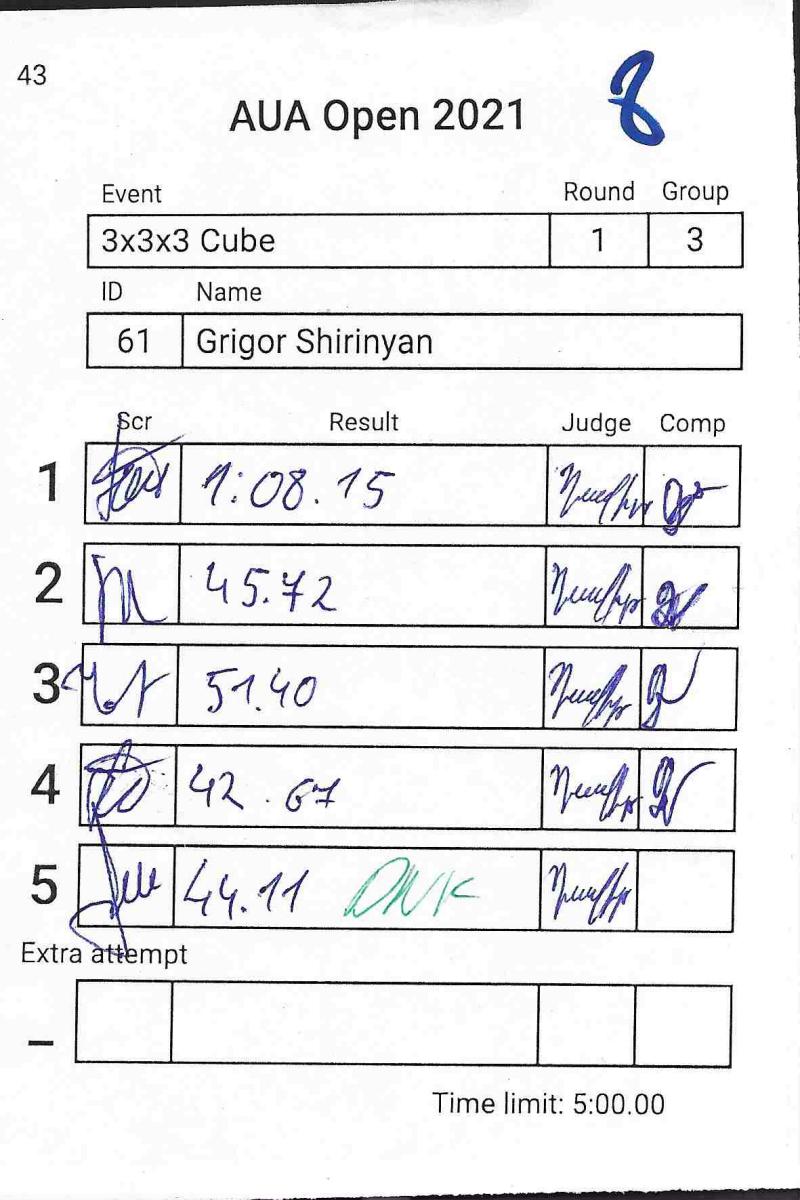 43
AUA Open 2021
8
Event Round Group
3x3x3 Cube 1 3
ID Name
61 Grigor Shirinyan
Scr Result Judge Comp
1 1:08.15
2 45.72
3 51.40
4 42.67
5 44.11
Extra attempt
_
Time limit: 5:00.00